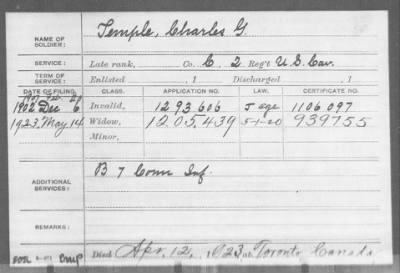 NAME OF SOLDIER: Temple, Charles G.
SERVICE: Late rank, Co. C, 2 Reg't U.S. Cav.
TERM OF SERVICE: Enlisted , 1 Discharged , 1
DATE OF FILING. CLASS. APPLICATION NO. LAW. CERTIFICATE NO.
1907 Feb
1902 Dec 6 Invalid, 1293606 J age 1106.097
1923, May 14 Widow, 1205,439 5-1-20 939755
Minor,
ADDITIONAL SERVICES: B 7 Conn Inf.
REMARKS:
Died Apr. 12, 1923 at Toronto Canada